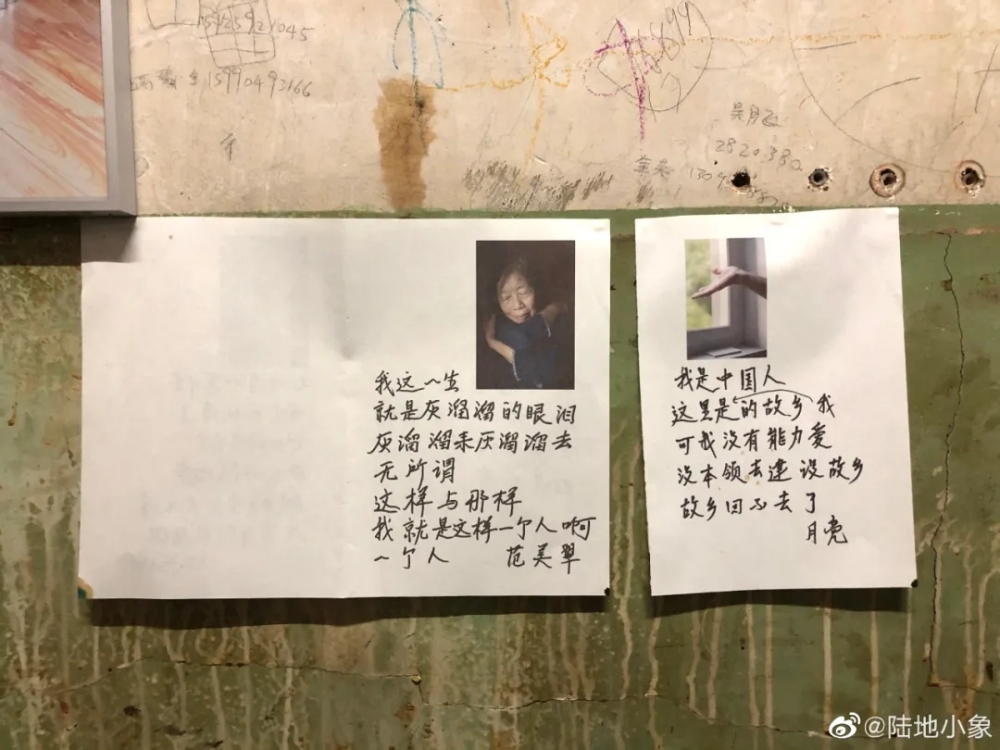 15925921045
15990493166
2820380
我这一生
就是灰溜溜的眼泪
灰溜溜来灰溜溜去
无所谓
这样与那样
我就是这样一个人啊
一个人 范美翠
我是中国人
这里是的故乡我
可我没有能力爱
没本领去建设故乡
故乡回不去了
月亮
@陆地小象